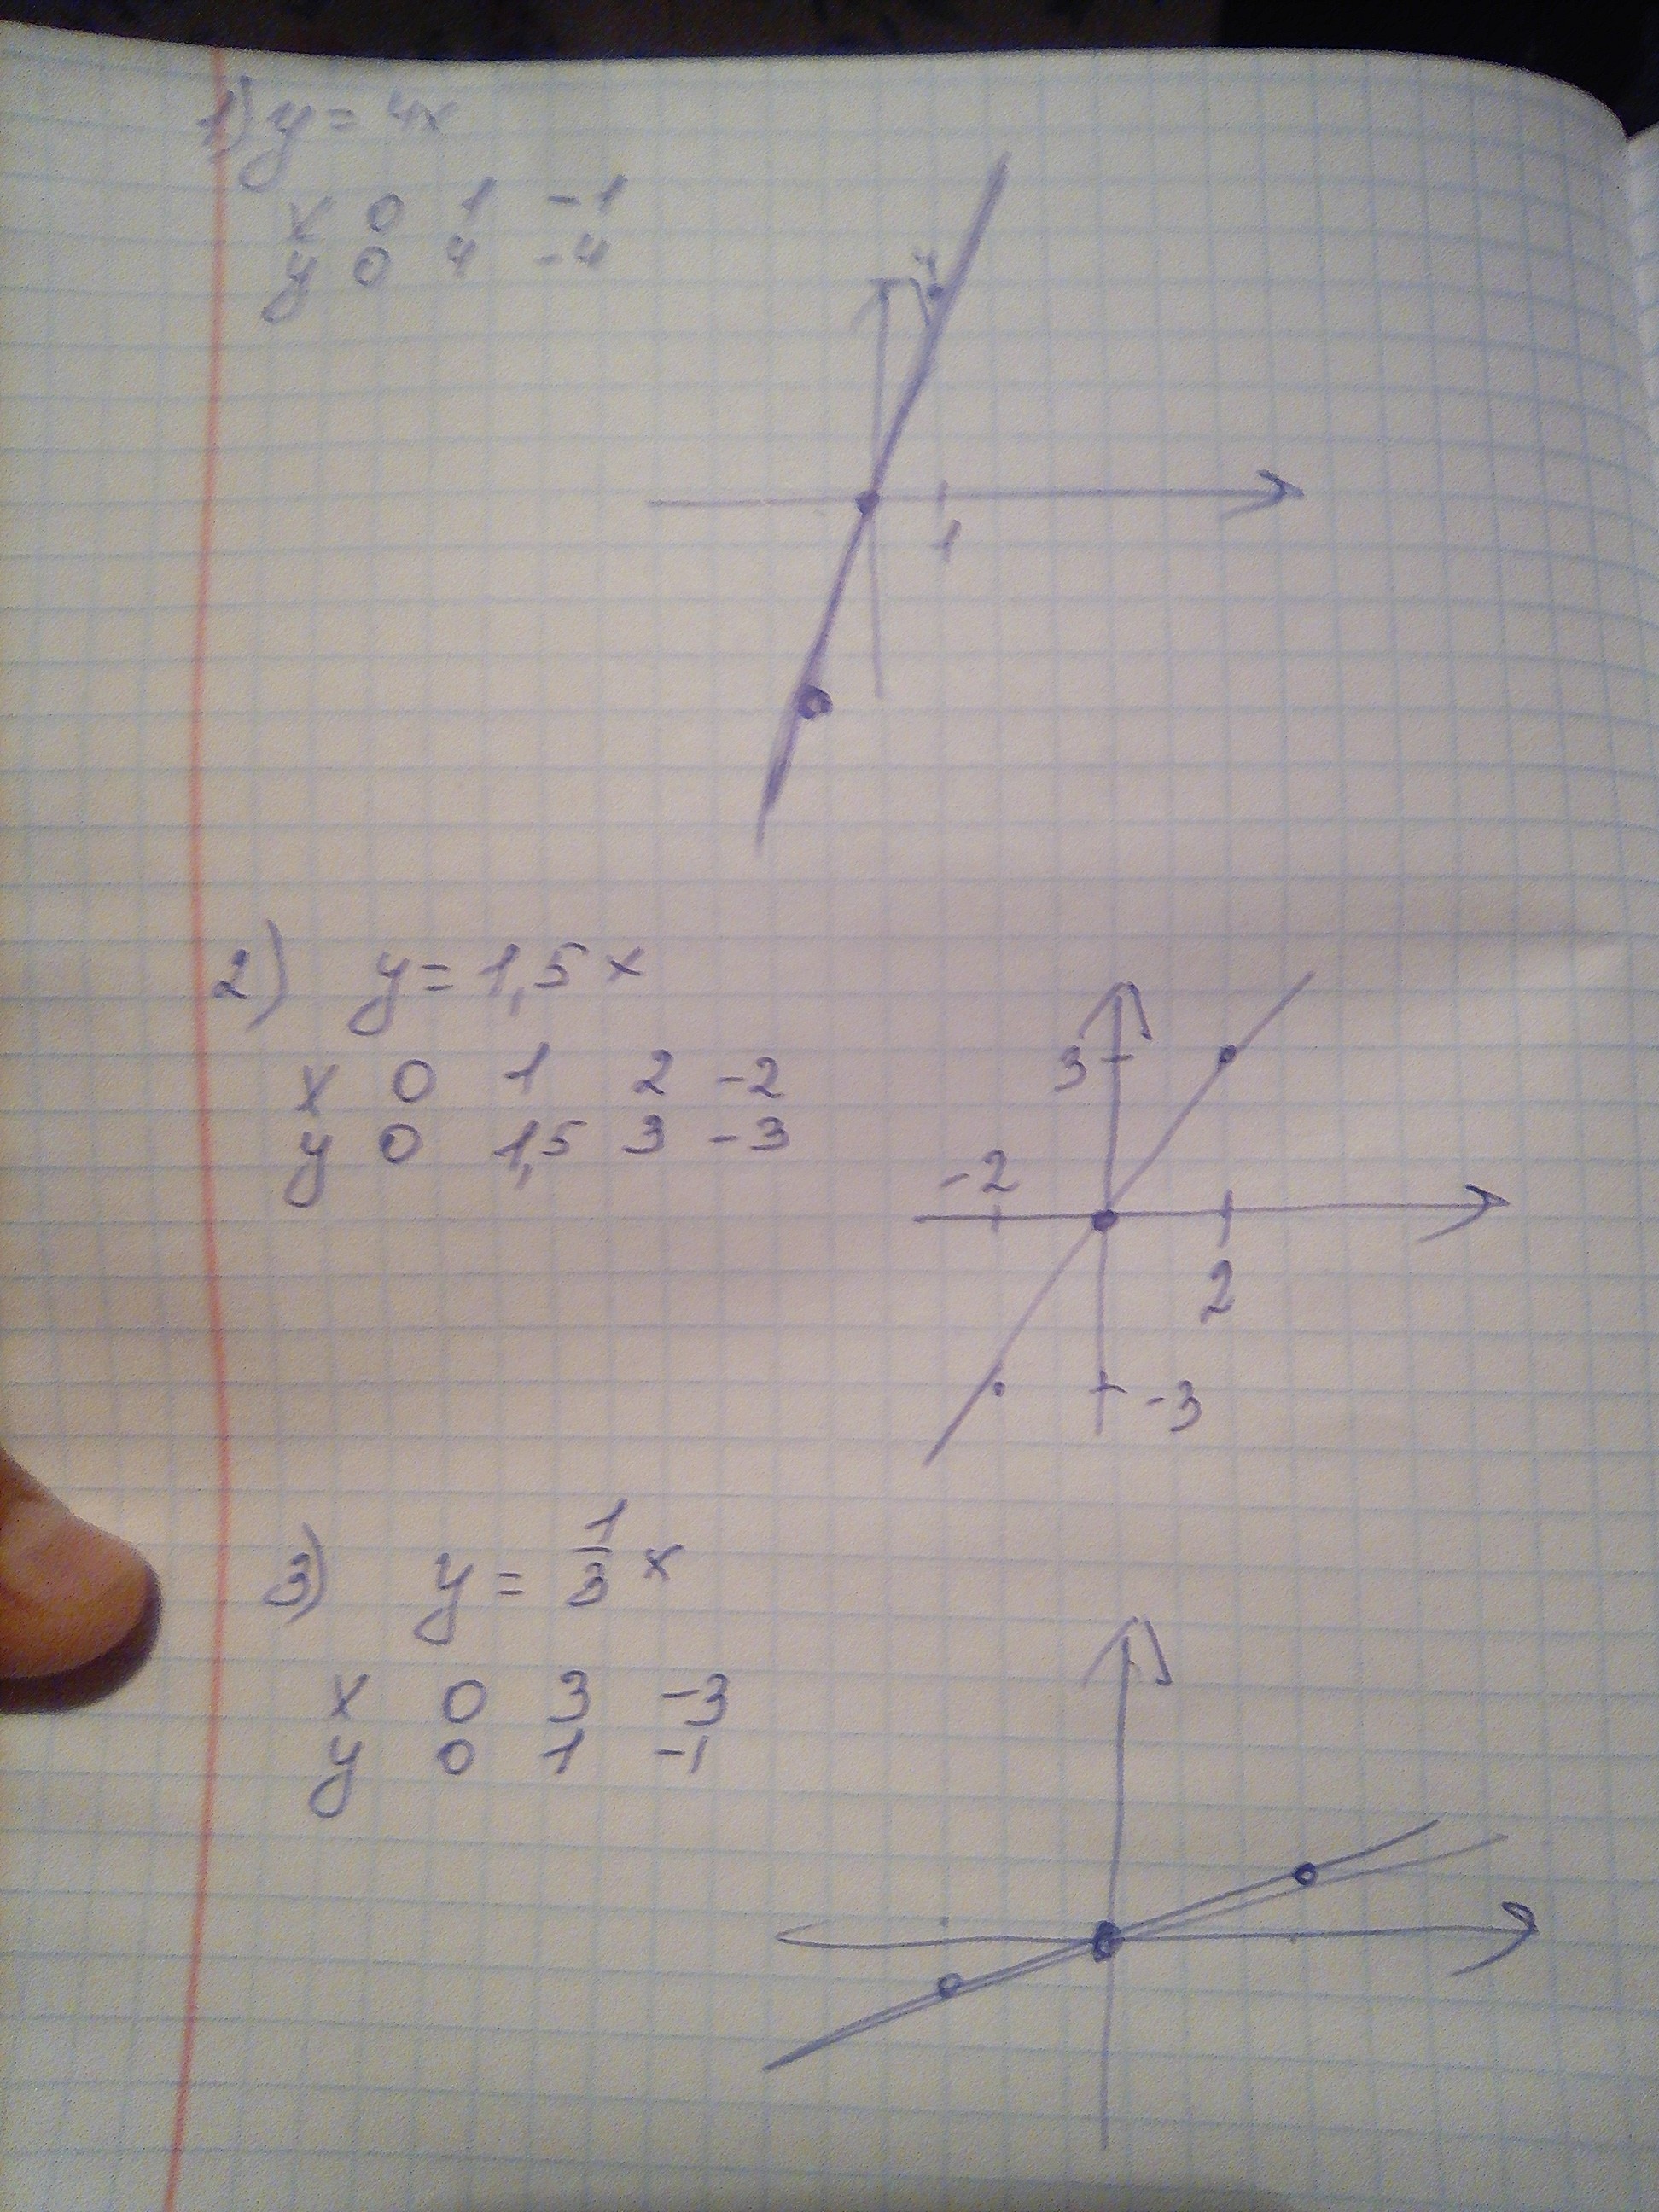 1) y = 4x
x 0 1 -1
y 0 4 -4
4
1
2) y = 1,5x
x 0 1 2 -2
y 0 1,5 3 -3
3
-2
2
-3
3) y = 1/3 x
x 0 3 -3
y 0 1 -1